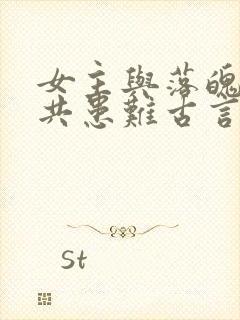 女主與落魄
共患難古言
st